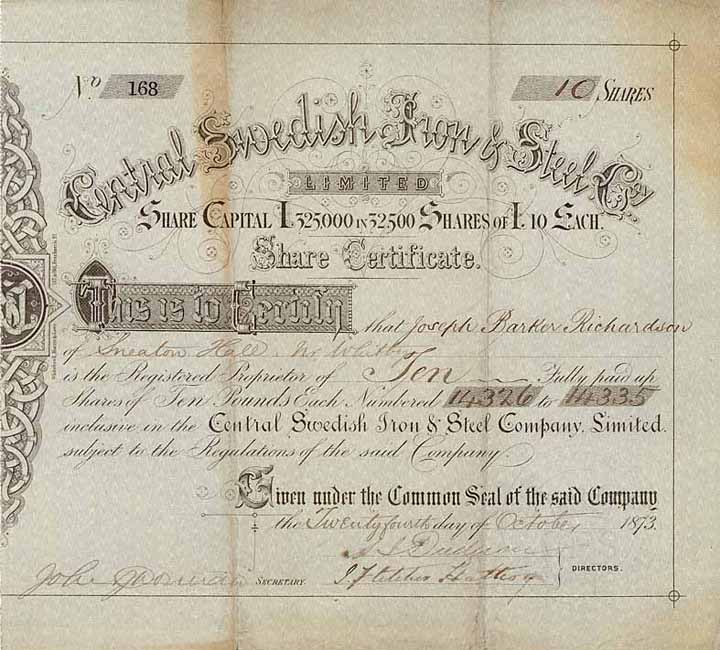 No 168 10 SHARES
Central Swedish Iron & Steel Coy
LIMITED
SHARE CAPITAL £325,000 IN 32500 SHARES OF £10 EACH.
Share Certificate.
This is to Certify
that Joseph Barker Richardson
of Sneaton Hall, Nr Whitby
is the Registered Proprietor of Ten Fully paid up
Shares of Ten Pounds Each Numbered 14326 to 14335
inclusive in the Central Swedish Iron & Steel Company, Limited.
subject to the Regulations of the said Company.
Given under the Common Seal of the said Company
the Twenty fourth day of October 1873.
DIRECTORS.
John SECRETARY. J. Fletcher